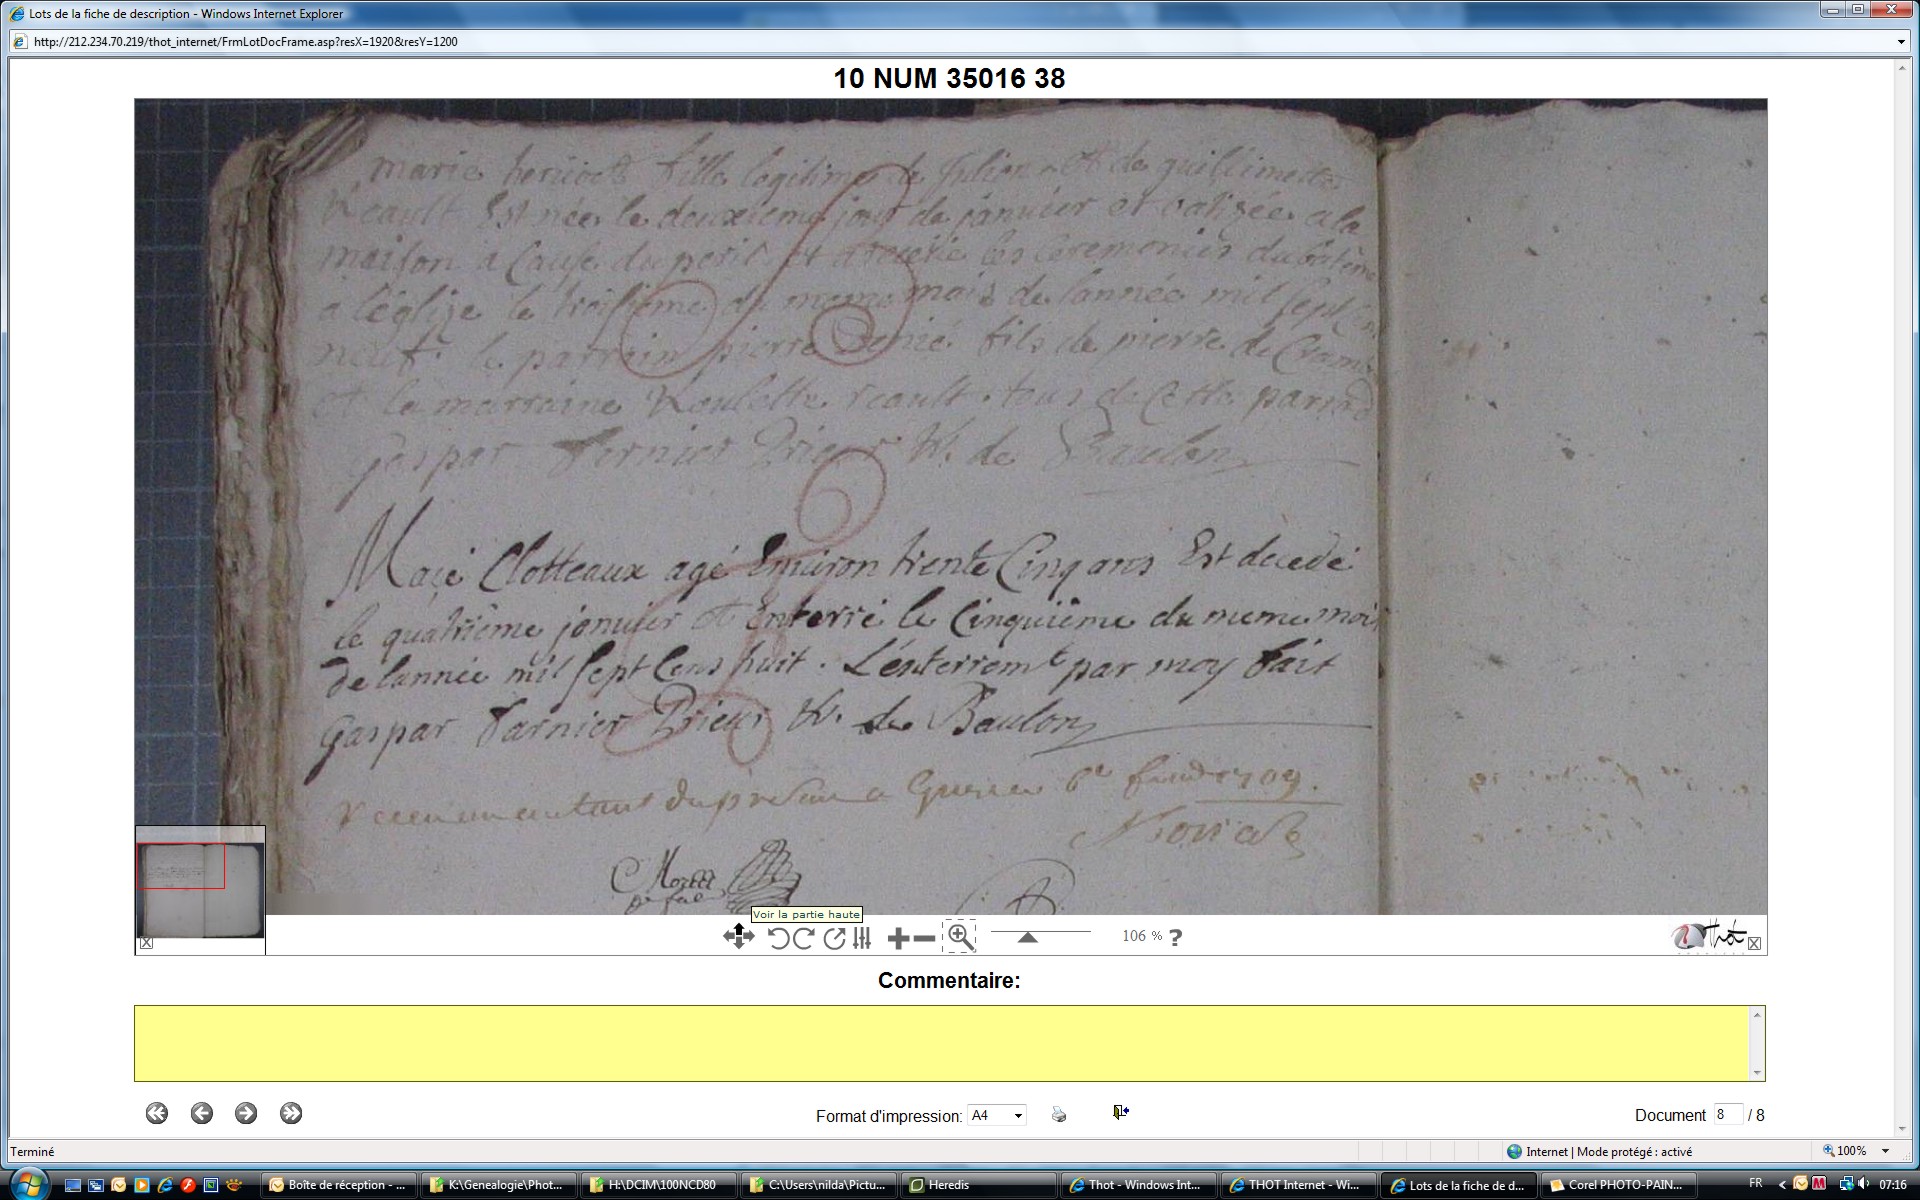 Lots de la fiche de description - Windows Internet Explorer
http://212.234.70.219/thot_internet/FrmLotDocFrame.asp?resX=1920&resY=1200
10 NUM 35016 38
marie hericot fille legitime de Julien et de guillemette
Reault Est née le deuxieme jour de janvier et batizée a la
maison a Cause du peril et a recue les Ceremonies du
a l'églize le troisieme du meme mois de lannée mil sept
neuf. le parrain pierre fils de pierre de
et la marraine reault tous de Cette
gaspar farnier Prieur R. de Baulon
Macé Clotteaux agé Environ trente Cinq ans Est decedé
le quatrième janvier et Enterré le Cinquième du meme mois
de lannée mil sept Cens huit. L'enterremt par moy fait
gaspar farnier Prieur R. de Baulon
1709.
Voir la partie haute
106 % ?
Thot
Commentaire:
Format d'impression: A4
Document 8 / 8
Terminé
Internet | Mode protégé : activé
100%
Boîte de réception - ...
K:\Genealogie\Phot...
H:\DCIM\100NCD80
C:\Users\nilda\Pictu...
Heredis
Thot - Windows Int...
THOT Internet - Wi...
Lots de la fiche de d...
Corel PHOTO-PAIN...
FR
07:16